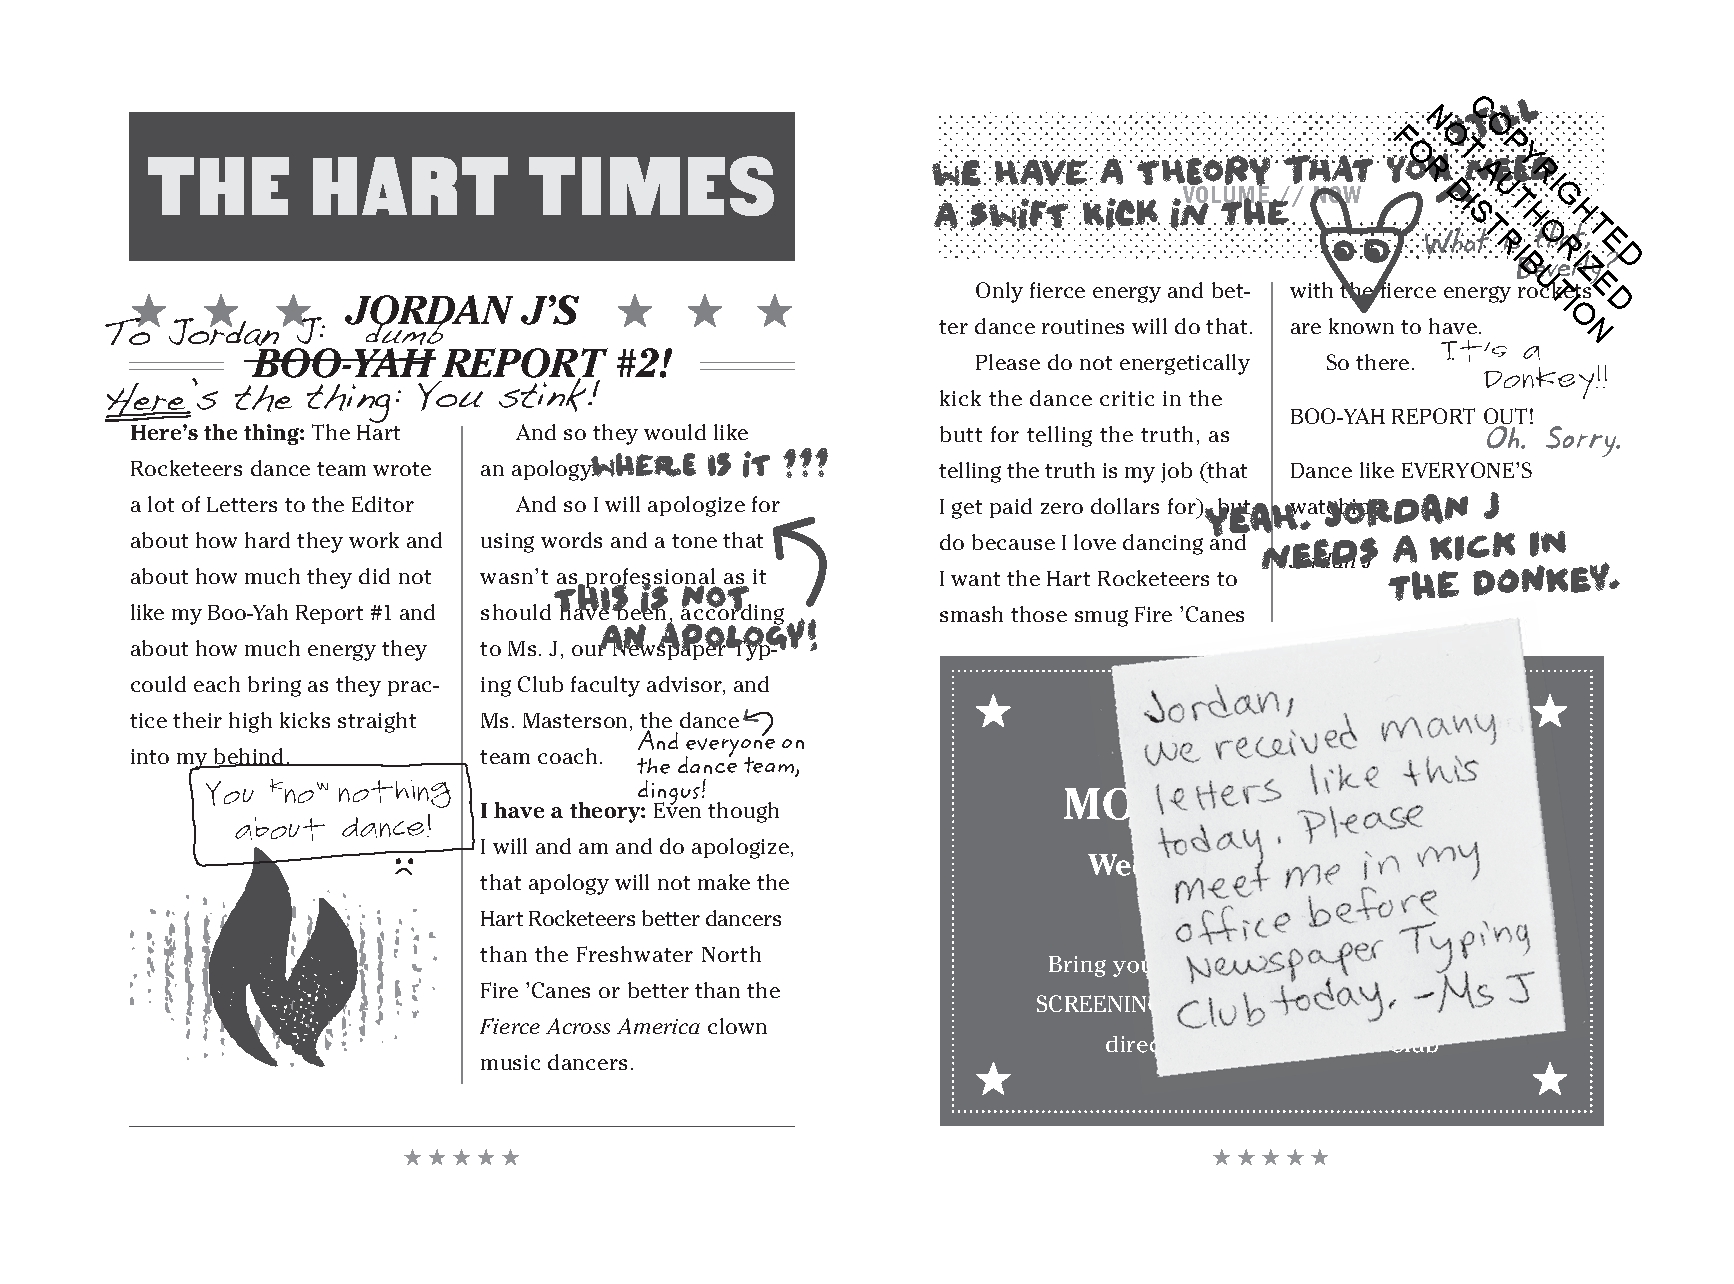 THE HART TIMES
JORDAN J'S
To Jordan J: dumb
BOO-YAH REPORT #2!
Here's the thing: You stink!
Here's the thing: The Hart
Rocketeers dance team wrote
a lot of Letters to the Editor
about how hard they work and
about how much they did not
like my Boo-Yah Report #1 and
about how much energy they
could each bring as they prac-
tice their high kicks straight
into my behind.
You know nothing
about dance!
And so they would like
an apology.
WHERE IS IT ???
And so I will apologize for
using words and a tone that
wasn't as professional as it
should have been, according
to Ms. J, our Newspaper Typ-
ing Club faculty advisor, and
Ms. Masterson, the dance
team coach.
THIS IS NOT
AN APOLOGY!
And everyone on
the dance team,
dingus!
I have a theory: Even though
I will and am and do apologize,
that apology will not make the
Hart Rocketeers better dancers
than the Freshwater North
Fire 'Canes or better than the
Fierce Across America clown
music dancers.
★★★★★
STILL
WE HAVE A THEORY THAT YOU NEED
VOLUME // NOW
A SWIFT KICK IN THE
What is that,
Beverly?
COPYRIGHTED
NOT AUTHORIZED
FOR DISTRIBUTION
Only fierce energy and bet-
ter dance routines will do that.
Please do not energetically
kick the dance critic in the
butt for telling the truth, as
telling the truth is my job (that
I get paid zero dollars for), but
do because I love dancing and
I want the Hart Rocketeers to
smash those smug Fire 'Canes
with the fierce energy rockets
are known to have.
So there.
It's a
Donkey!!
BOO-YAH REPORT OUT!
Oh. Sorry.
Dance like EVERYONE'S
watching,
Jordan J
YEAH. JORDAN J
NEEDS A KICK IN
THE DONKEY.
MO
We
Bring you
SCREENING
direc
Club
Jordan,
we received many
letters like this
today. Please
meet me in my
office before
Newspaper Typing
Club today. -Ms J
★★★★★